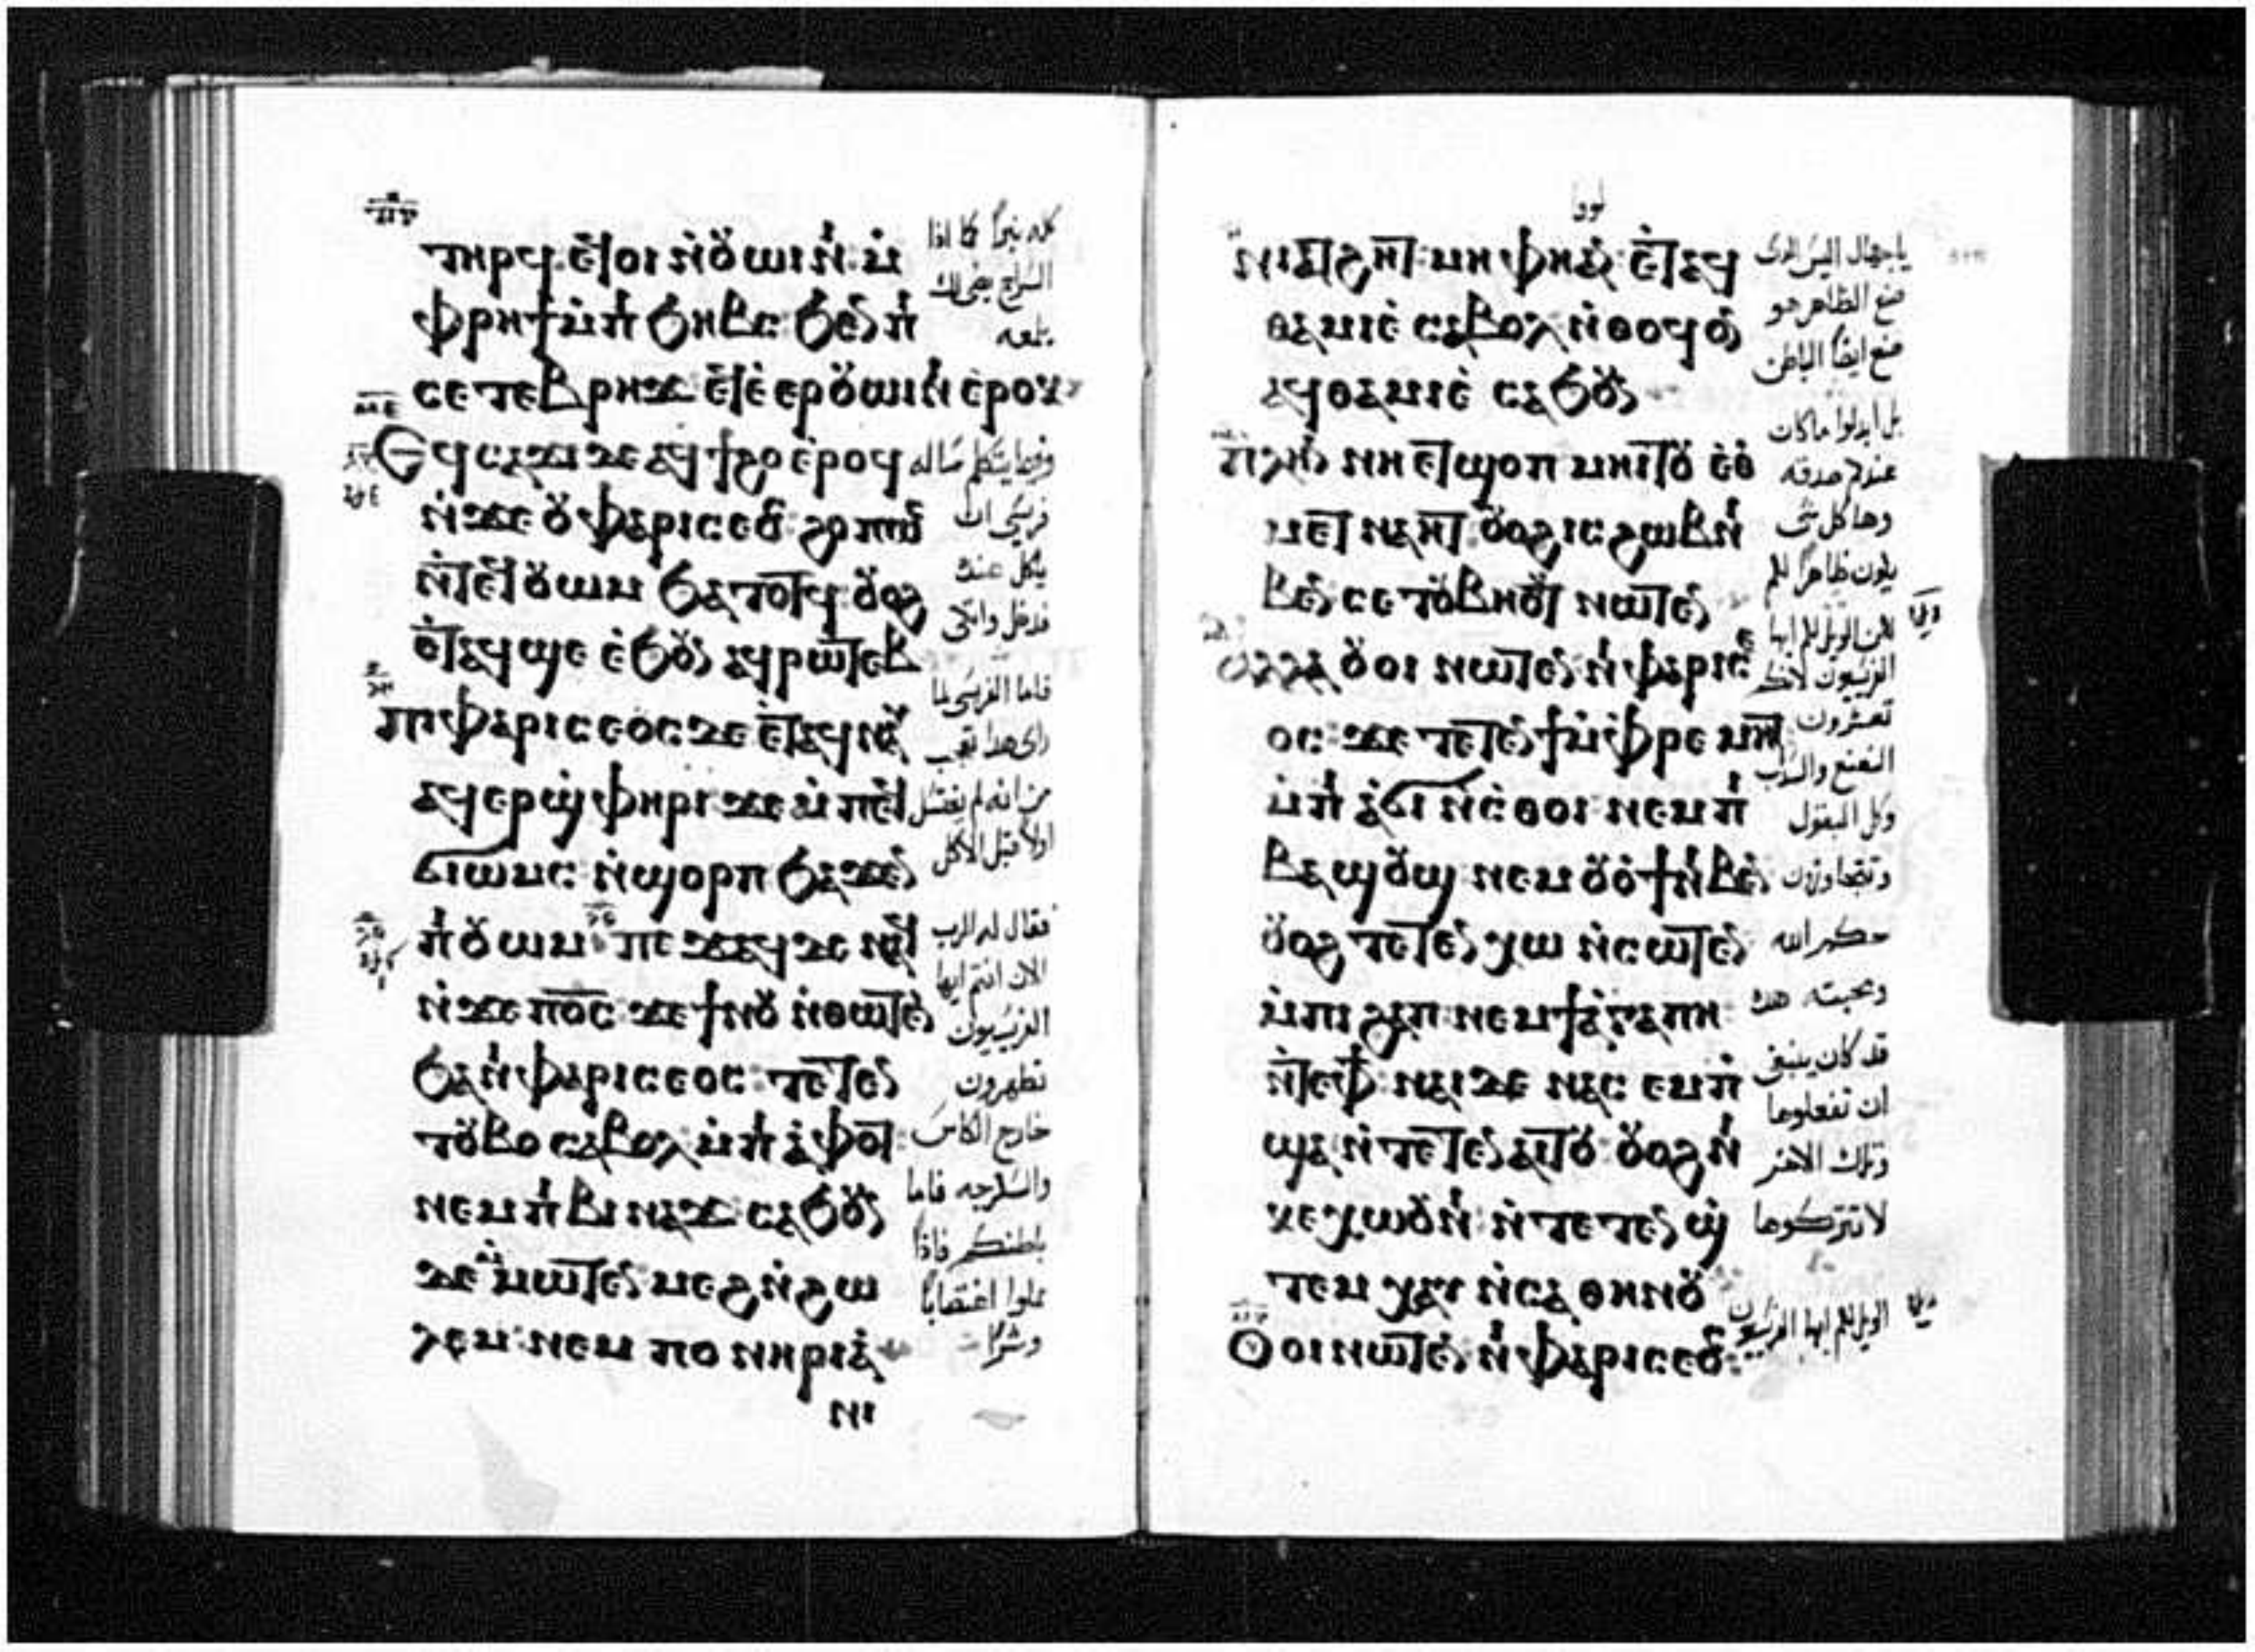 ⲧⲏⲣϥ ⲉϥⲟⲓ ⲛ̀ⲟⲩⲱⲓⲛⲓ ⲙ̀
ⲫⲣⲏϯ ⲙ̀ⲡⲓϧⲏⲃⲥ ϧⲉⲛ ⲡⲓ
ⲥⲉⲧⲉⲃⲣⲏϫ ⲉϥⲉ̀ⲉⲣⲟⲩⲱⲓⲛⲓ ⲉ̀ⲣⲟⲕ
Ⲉϥⲥⲁϫⲓ ⲇⲉ ⲁϥϯϩⲟ ⲉ̀ⲣⲟϥ
ⲛ̀ϫⲉ ⲟⲩⲫⲁⲣⲓⲥⲉⲟⲥ ϩⲟⲡⲱⲥ
ⲛ̀ⲧⲉϥⲟⲩⲱⲙ ϧⲁⲧⲟⲧϥ ⲟⲩⲟϩ
ⲉ̀ⲧⲁϥϣⲉ ⲉ̀ϧⲟⲩⲛ ⲁϥⲣⲱⲧⲉⲃ
ⲡⲓⲫⲁⲣⲓⲥⲉⲟⲥ ⲇⲉ ⲉ̀ⲧⲁϥⲛⲁⲩ
ⲁϥⲉⲣϣ̀ⲫⲏⲣⲓ ϫⲉ ⲙ̀ⲡⲉϥ
ϭⲓⲱⲙⲥ ⲛ̀ϣⲟⲣⲡ ϧⲁϫⲉⲛ
ⲡⲓⲟⲩⲱⲙ ⲡⲉϫⲁϥ ⲇⲉ ⲛⲁϥ
ⲛ̀ϫⲉ ⲡⲟ̅ⲥ̅ ϫⲉ ϯⲛⲟⲩ ⲛ̀ⲑⲱⲧⲉⲛ
ϧⲁ ⲛⲓⲫⲁⲣⲓⲥⲉⲟⲥ ⲧⲉⲧⲉⲛ
ⲧⲟⲩⲃⲟ ⲥⲁⲃⲟⲗ ⲙ̀ⲡⲓⲁ̀ⲫⲟⲧ
ⲛⲉⲙ ⲡⲓⲃⲓⲛⲁϫ ⲥⲁϧⲟⲩⲛ
ⲇⲉ ⲙ̀ⲙⲱⲧⲉⲛ ⲙⲉϩ ⲛ̀ϩⲱ
ⲗⲉⲙ ⲛⲉⲙ ⲡⲟⲛⲏⲣⲓⲁ̀
ⲛⲓ
كله نيرا كما اذا
السراج يضي لك
بلمعه
وفيما يتكلم ساله
فريسي ان
ياكل عنده
فدخل واتكى
فاما الفريسي لما
راى هذا تعجب
من انه لم يغتسل
اولا قبل الاكل
فقال له الرب
الان انتم ايها
الفريسيون
تطهرون
خارج الكاس
والسكرجه فاما
باطنكم
مملوا اغتصابا
ⲛⲓⲁⲧϩⲏⲧ ⲙⲏ ⲫⲏ ⲁⲛ ⲉ̀ⲧⲁϥ
ⲑⲁⲙⲓⲉ̀ ⲥⲁⲃⲟⲗ ⲛ̀ⲑⲟϥ ⲟⲛ
ⲁϥⲑⲁⲙⲓⲉ̀ ⲥⲁϧⲟⲩⲛ
ⲡⲗⲏⲛ ⲛⲏ ⲉⲧϣⲟⲡ ⲙⲏⲓⲧⲟⲩ ⲉⲑ
ⲙⲉⲧⲛⲁⲏⲧ ⲟⲩⲟϩ ⲓⲥ ϩⲱⲃ ⲛⲓ
ⲃⲉⲛ ⲥⲉⲧⲟⲩⲃⲏⲟⲩⲧ ⲛⲱⲧⲉⲛ
ⲁⲗⲗⲁ ⲟⲩⲟⲓ ⲛⲱⲧⲉⲛ ⲛⲓⲫⲁⲣⲓⲥⲉ
ⲟⲥ ϫⲉ ⲧⲉⲧⲉⲛϯ ⲙ̀ⲫⲣⲉⲙⲏⲧ
ⲙ̀ⲡⲓⲁ̀ϭⲓⲛ ⲛ̀ⲥ̀ⲑⲟⲓ ⲛⲉⲙ ⲡⲓ
ⲃⲁϣⲟⲩϣ ⲛⲉⲙ ⲟⲩⲟϯ ⲛⲓⲃⲉⲛ
ⲟⲩⲟϩ ⲧⲉⲧⲉⲛⲭⲱ ⲛ̀ⲥⲱⲧⲉⲛ
ⲙ̀ⲡⲓϩⲁⲡ ⲛⲉⲙ ϯⲁ̀ⲅⲁⲡⲏ
ⲛ̀ⲧⲉ ⲫϯ ⲛⲁⲓ ⲇⲉ ⲛⲁⲥ ⲉⲙⲡ̀
ϣⲁ ⲛ̀ⲧⲉⲧⲉⲛⲁⲓⲧⲟⲩ ⲟⲩⲟϩ ⲛⲓ
ⲕⲉⲭⲱⲟⲩⲛⲓ ⲛ̀ⲧⲉⲧⲉⲛϣ̀
ⲧⲉⲙⲭⲁⲩ ⲛ̀ⲥⲁ ⲑⲏⲛⲟⲩ
Ⲟⲩⲟⲓ ⲛⲱⲧⲉⲛ ⲛⲓⲫⲁⲣⲓⲥⲉⲟⲥ
لوقا
يا جهال اليس الذي
صنع الظاهر هو
صنع ايضا الباطن
بل ابذلوا ما كان
عندكم صدقه
وها كل شي
يكون طاهرا لكم
لكن الويل لكم ايها
الفريسيون لانكم
تعشرون
النعنع والسذاب
وكل البقول
وتتجاوزون
حكم الله
ومحبته هذه
قد كان ينبغي
ان تفعلوها
وتلك الاخر
لا تتركوها
الويل لكم ايها الفريسيون